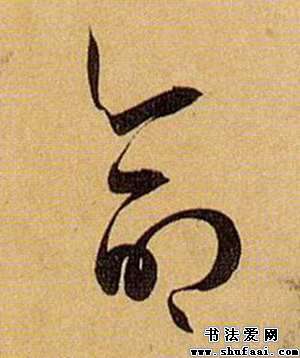 命
书法爱网
www.shufaai.com